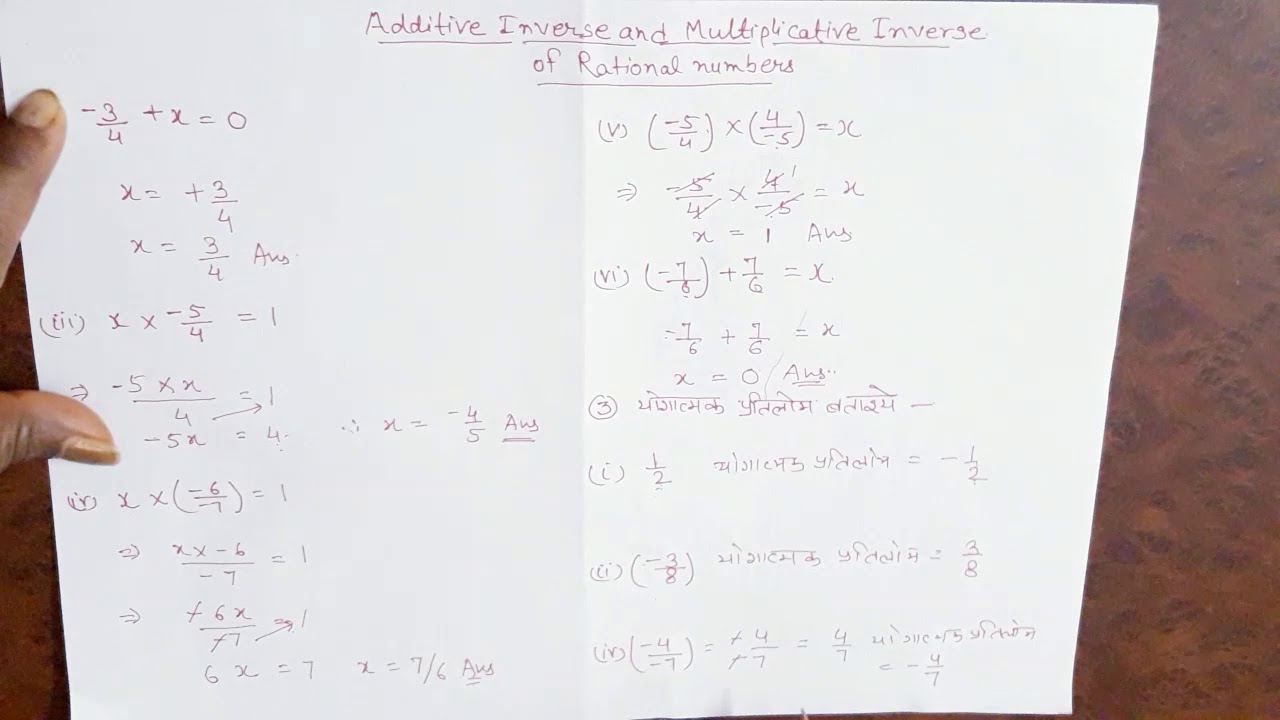 Additive Inverse and Multiplicative Inverse
of Rational numbers
-3/4 + x = 0
x = +3/4
x = 3/4 Ans.
(iii) x × -5/4 = 1
⇒ -5 × x/4 = 1
-5x = 4.
∴ x = -4/5 Ans
(iv) x × (-6/-7) = 1
⇒ x × -6/-7 = 1
⇒ -6x/-7 = 1
6x = 7 x = 7/6 Ans
(v) (-5/4) × (4/-5) = x
⇒ -5/4 × 4/-5 = x
x = 1 Ans
(vi) (-7/6) + 7/6 = x.
-7/6 + 7/6 = x
x = 0 Ans..
③ योगात्मक प्रतिलोम बताइये —
(i) 1/2 योगात्मक प्रतिलोम = -1/2
(ii) (-3/8) योगात्मक प्रतिलोम = 3/8
(iv) (-4/-7) = -4/-7 = 4/7 योगात्मक प्रतिलोम
= -4/7